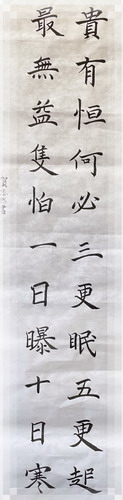 貴有恒何必三更眠五更起
最無益隻怕一日曝十日寒